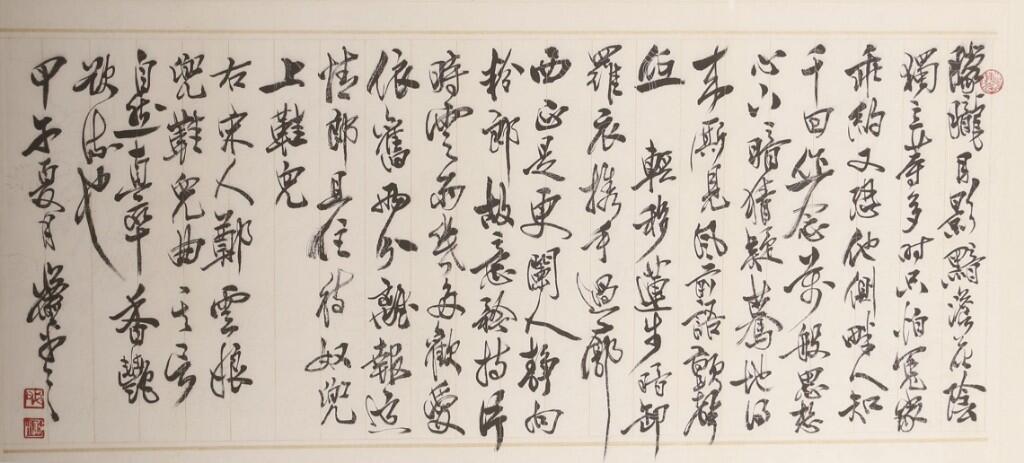 朦朧月影黯澹花陰
獨立等多时只怕冤家
乖約又恐他側畔人知
千回作念万般思想
心下暗猜疑驀地得
来厮見風前語顫聲
低 輕移蓮步暗卸
羅衣携手過廊
西正是更闌人静向
粉郎故意矜持片
時雲雨幾多歡愛
依舊兩分離報道
情郎且住待奴兜
上鞋兒
右宋人鄭雲娘
兜鞋兒曲其言
自述真率香艷
欲流也
甲子夏月